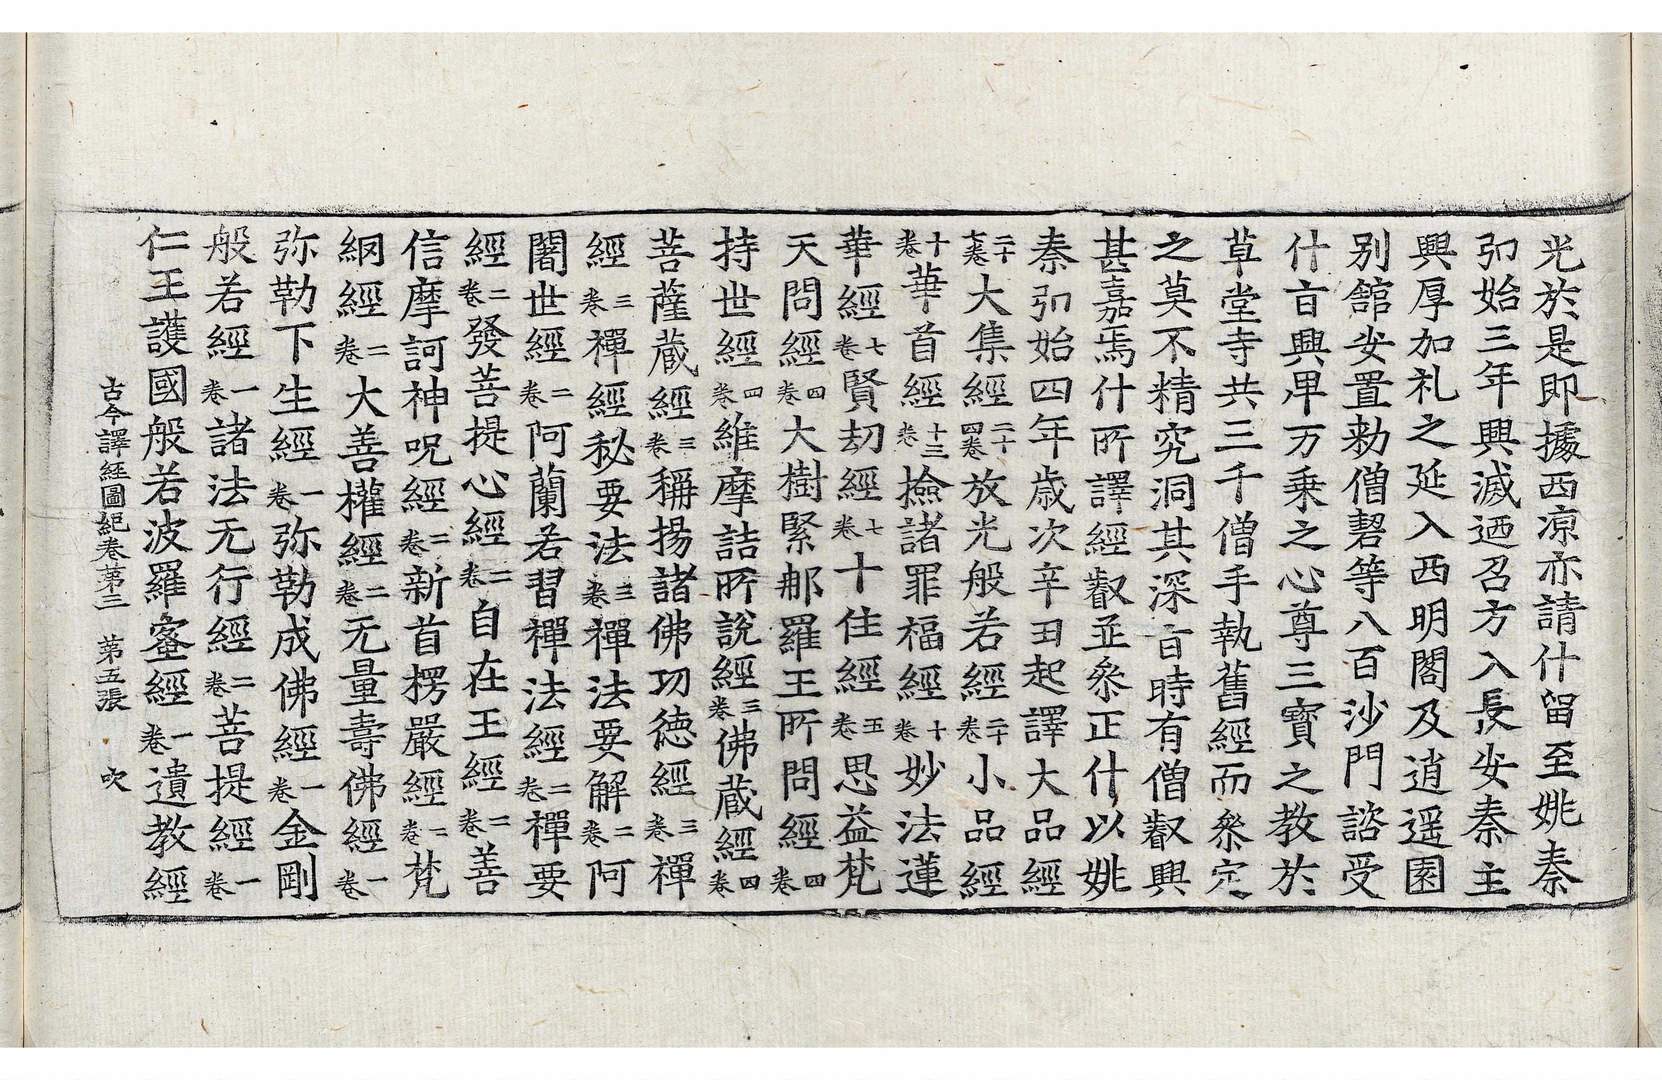 光於是即據西凉亦請什留至姚秦
弘始三年興滅迺召方入長安秦主
興厚加礼之延入西明閣及逍遥園
别舘安置勑僧䂮等八百沙門諮受
什旨興早万乗之心尊三寶之教於
草堂寺共三千僧手執舊經而叅定
之莫不精究洞其深旨時有僧叡興
甚嘉焉什所譯經叡並叅正什以姚
秦弘始四年歳次辛丑起譯大品經
二十七卷大集經二十四卷放光般若經二十卷小品經
十卷華首經十三卷撿諸罪福經十卷妙法蓮
華經七卷賢刧經七卷十住經五卷思益梵
天問經四卷大樹緊那羅王所問經四卷
持世經四卷維摩詰所說經三卷佛藏經四卷
菩薩藏經三卷稱揚諸佛功德經三卷禪
經三卷禪經秘要法三卷禪法要解二卷阿
闍世經二卷阿蘭若習禪法經二卷禪要
經二卷發菩提心經二卷自在王經二卷善
信摩訶神呪經二卷新首楞嚴經二卷梵
網經二卷大善權經二卷无量壽佛經一卷
弥勒下生經一卷弥勒成佛經一卷金剛
般若經一卷諸法无行經二卷菩提經一卷
仁王護國般若波羅蜜經一卷遺教經
古今譯經圖紀卷苐三 苐五張 吹